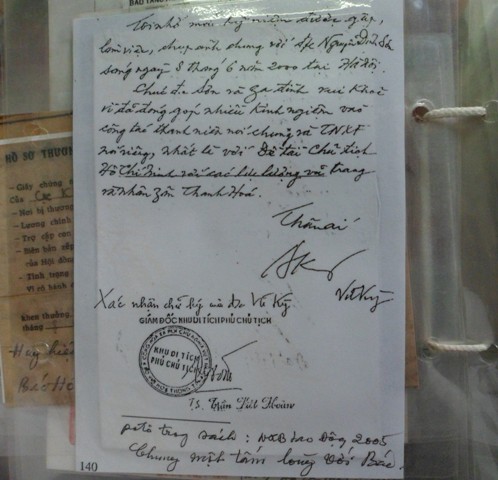 BẢO TÀNG
Tôi nhớ mãi kỷ niệm được gặp,
làm việc, chụp ảnh chung với đ/c Nguyễn Đình Sơn
song ngày 8 tháng 6 năm 2000 tại Hà Nội.
Chúc đ/c Sơn và gia đình vui khoẻ
vì đã đóng góp nhiều kinh nghiệm vào
công tác thanh niên nói chung và TNXP
nói riêng, nhất là với Đề tài Chủ tịch
Hồ Chí Minh với các lực lượng vũ trang
và nhân zân Thanh Hoá.
Thân ái
Vũ Kỳ
Xác nhận chữ ký của đ/c Vũ Kỳ
GIÁM ĐỐC KHU DI TÍCH PHỦ CHỦ TỊCH
KHU DI TÍCH
PHỦ CHỦ TỊCH
TS. Trần Viết Hoàn
trong sách : NXB Lao Động 2005
Chung một tấm lòng với Bác.
140
HỒ SƠ THƯƠNG
- Giấy chứng
Của
- Nơi bị thương
- Lương chính
- Trợ cấp
- Biên bản
của Hội đồng
- Tình trạng
Khen thưởng
tháng
Huy hiệu
Bác Hồ